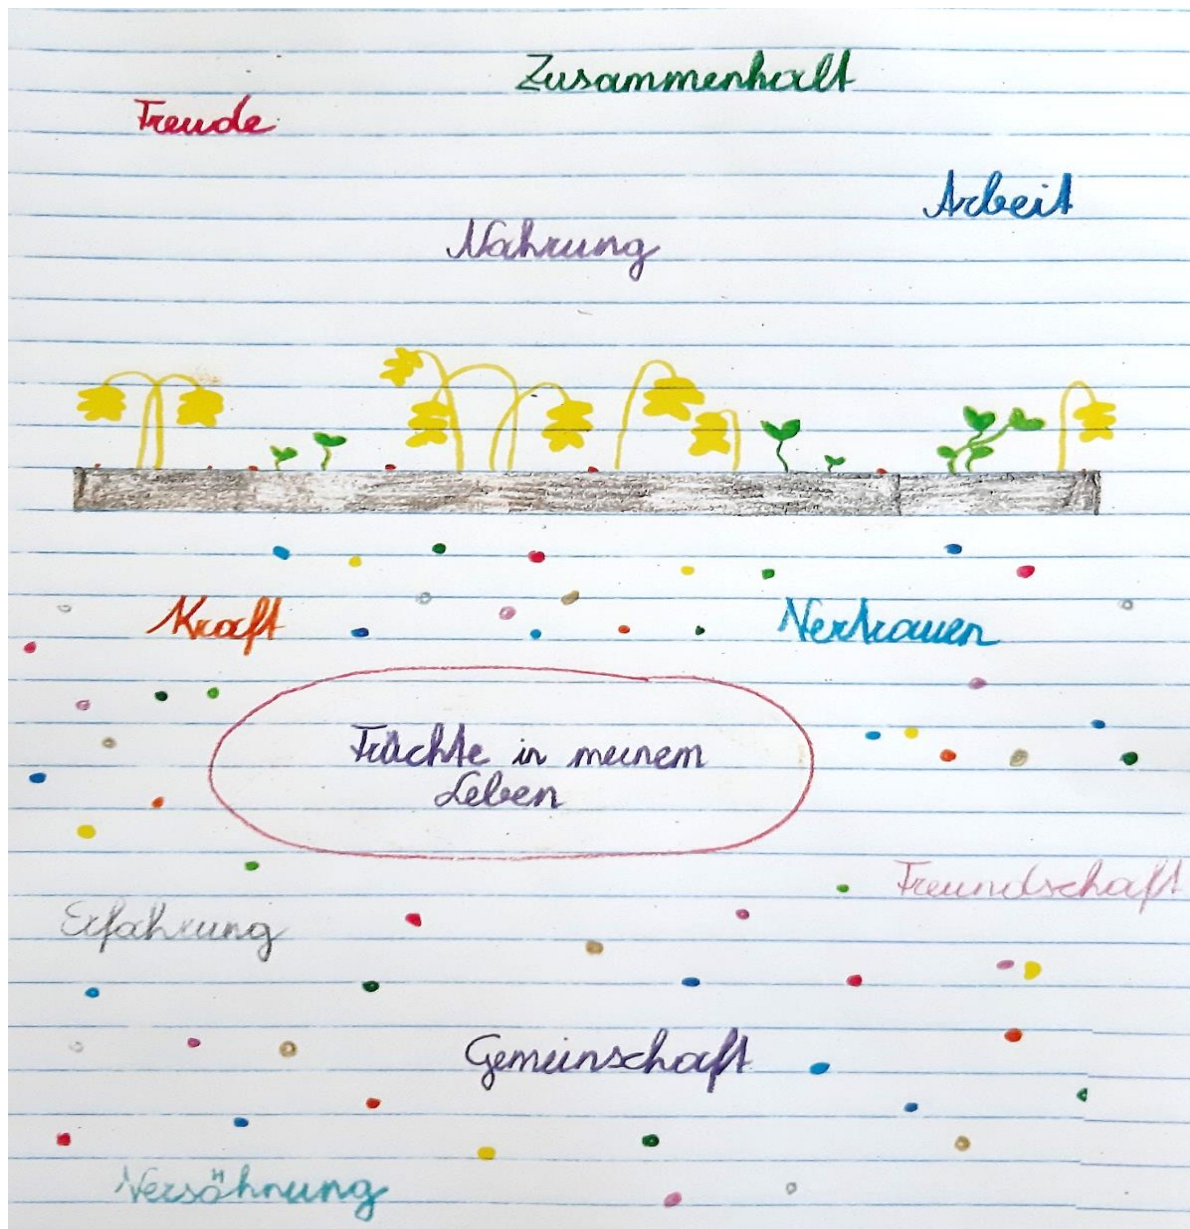 Zusammenhalt
Freude
Arbeit
Nahrung
Kraft
Vertrauen
Früchte in meinem
Leben
Freundschaft
Erfahrung
Gemeinschaft
Versöhnung